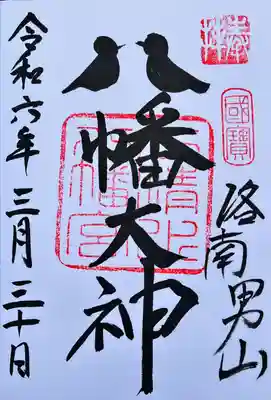 奉拝
國寶
洛南男山
幡大神
石清水八幡宮
令和六年三月三十日